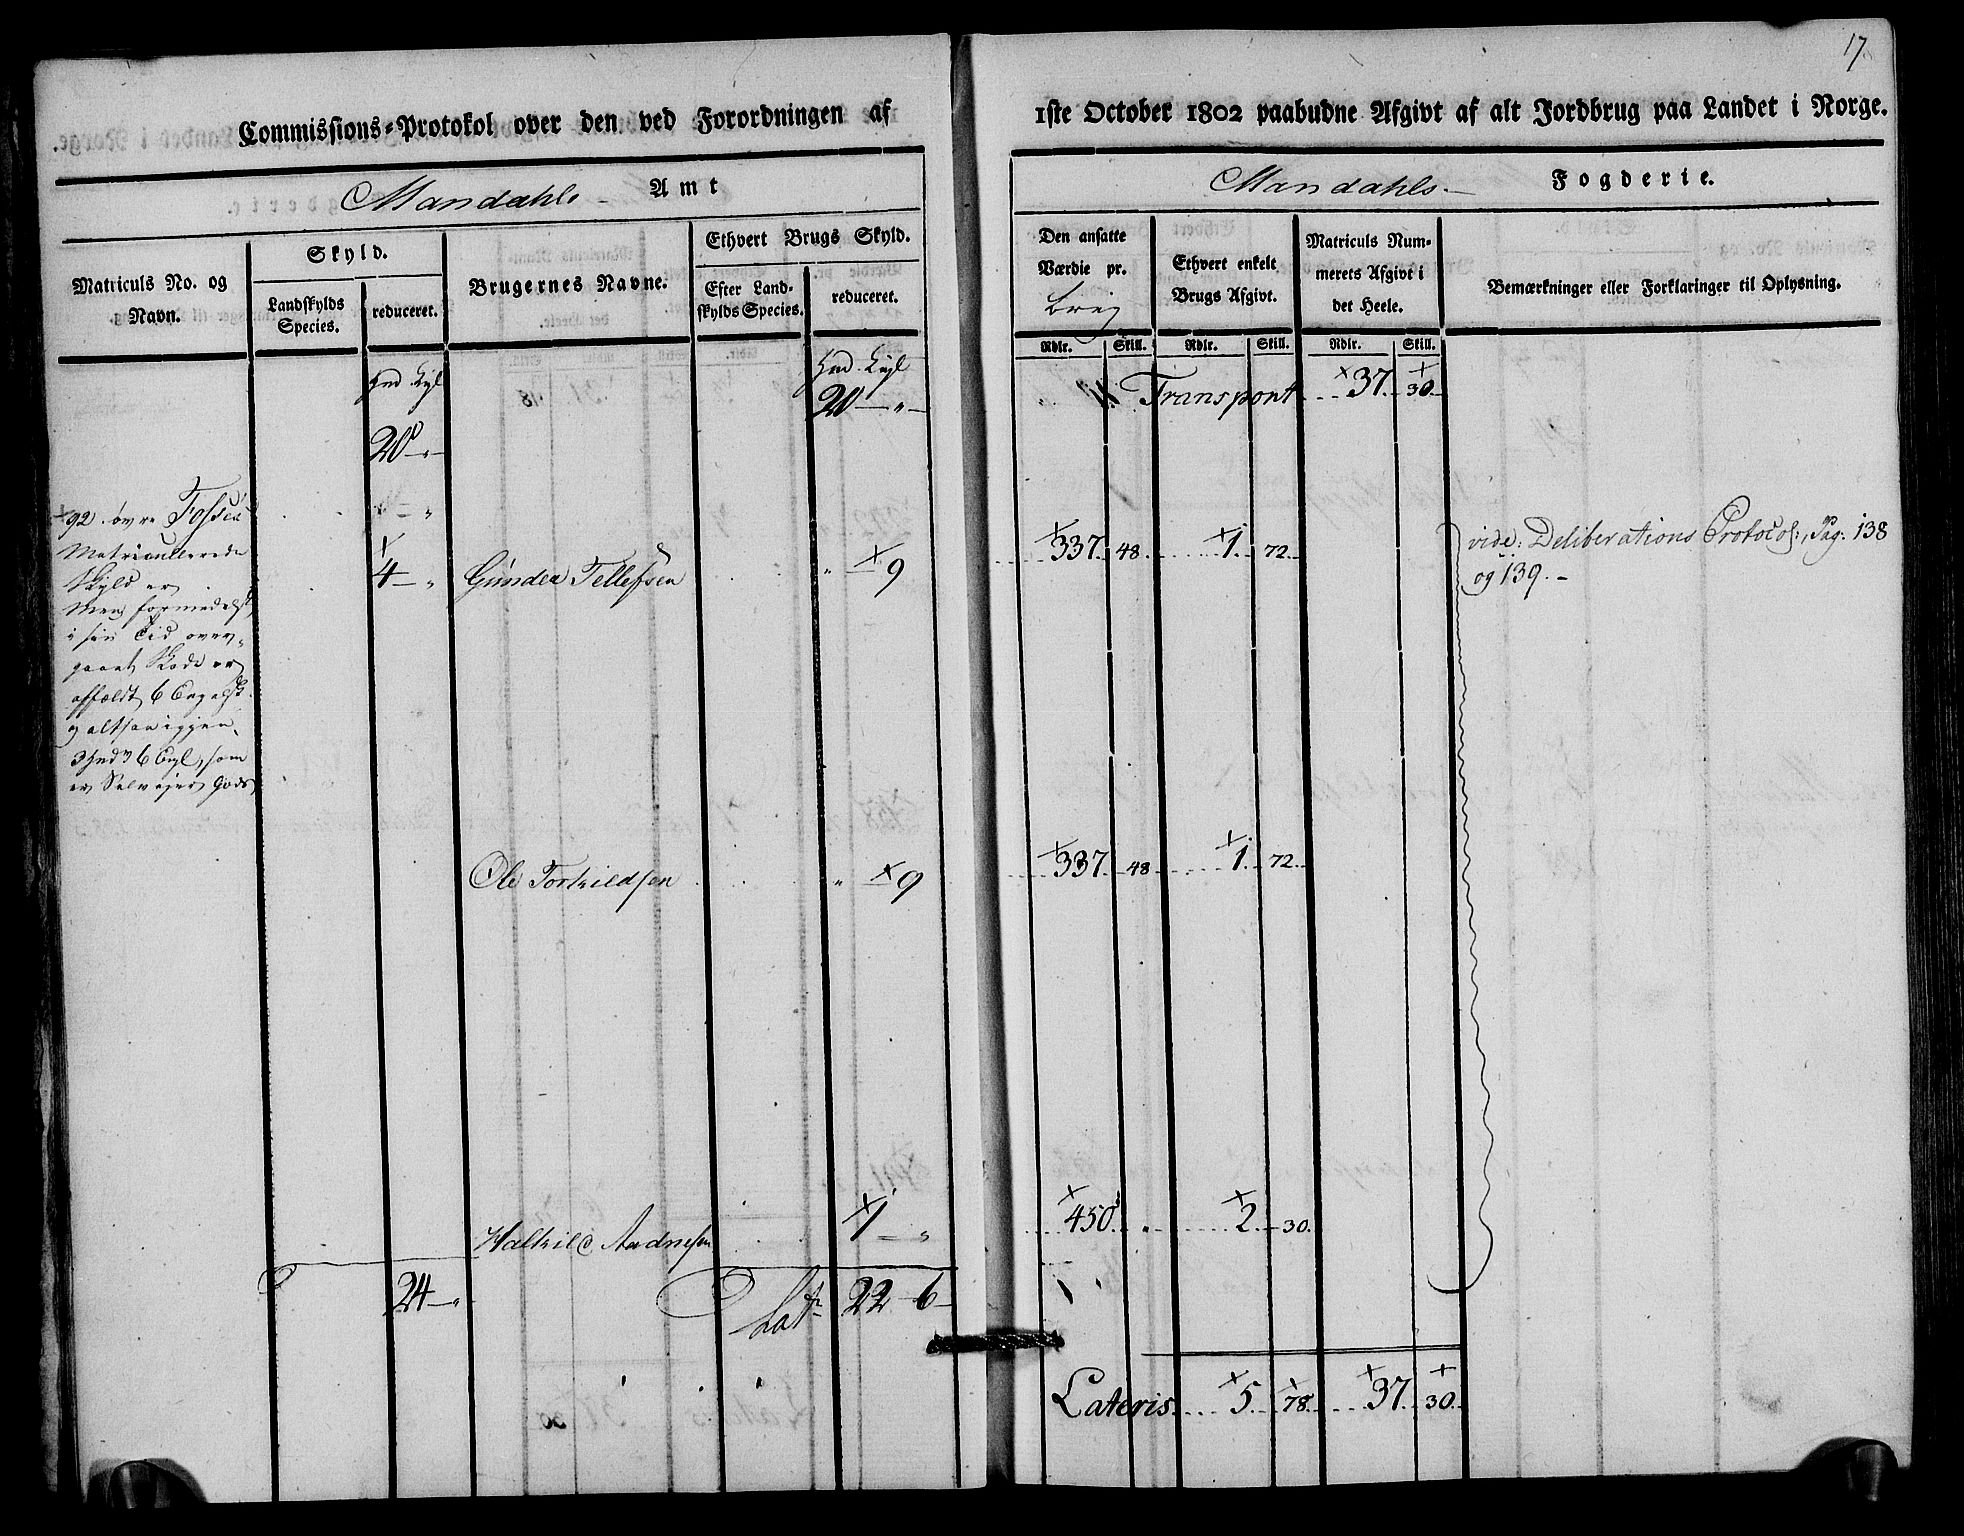 17.
Commissions-Protokol over den ved Forordningen af 1ste October 1802 paabudne Afgivt af alt Jordbrug paa Landet i Norge.
Mandahls Amt
Mandahls Fogderie.
Matriculs No. og Navn.
Skyld.
Landskylds Species.
reduceret.
Brugernes Navne.
Ethvert Brugs Skyld.
Efter Landskylds Species.
reduceret.
Den ansatte Værdie pr.
Ethvert enkelt Brugs Afgivt.
Matriculs Nummerets Afgivt i det Heele.
Bemærkninger eller Forklaringer til Oplysning.
Rdlr. Skill. Rdlr. Skill. Rdlr. Skill.
20 — „ —
Transport 37. 30.
20 — „
92. øvre Fosse
Matriculerede
Skyld er
4 — „ Gunder Tellefsen „ 9 337. 48. 1. 72.
vide: Deliberations Protocol: Pag: 138
og 139. —
Men formedelst
i sin Tid over-
gaaet Skade er
affældt 6 Engelsk
og altsaa igjen
3 Hud 6 Engl, som
er Selvejer Gods
Ole Torkildsen „ 9 337. 48. 1. 72.
Halkild Aadnesen 1 — „ 450. „ 2. 30.
24 — „ Lat: 22 — 6 —
Lateris 5. 78. 37. 30.